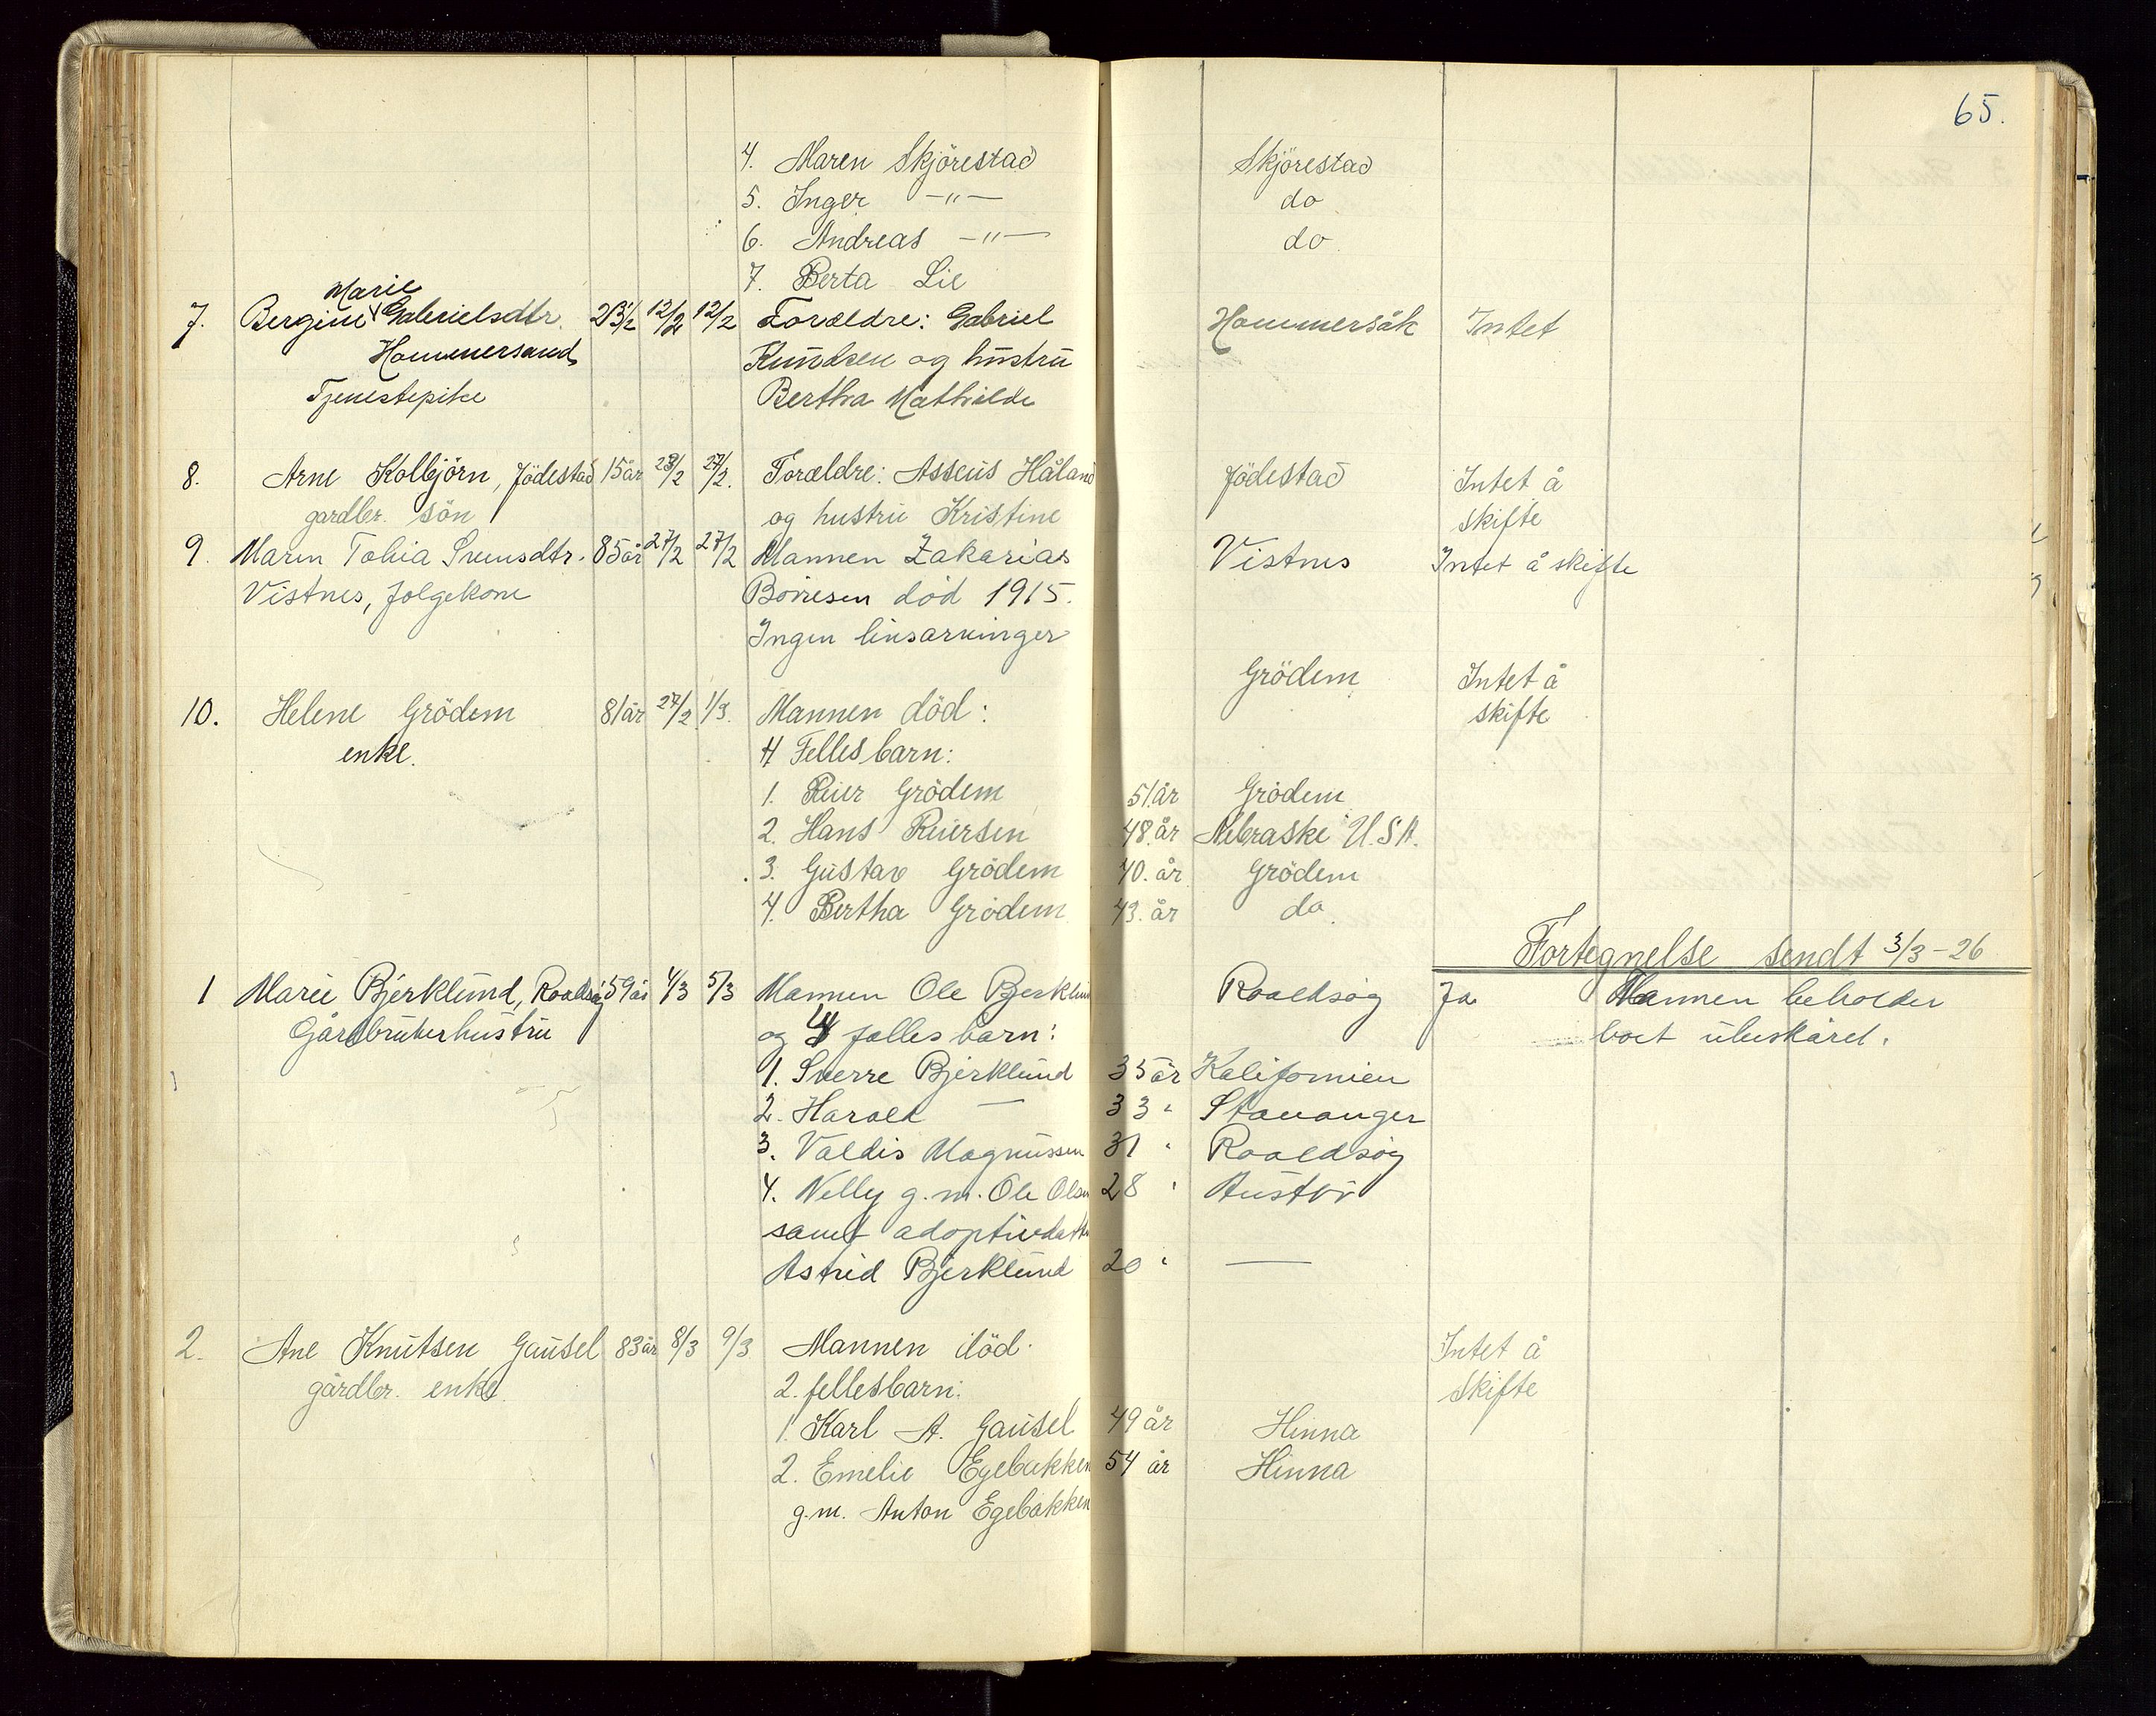 65.
4. Maren Skjörestad Skjörestad
5. Inger —"— do
6. Andreas —"— do
7. Berta Lie
Marie
7. Bergine Gabrielsdtr. 12/2 12/2 Forældre: Gabriel Hommersåk Intet
Hommersand Knudsen og hustru
Tjenestepike Bertha Mathilde
8. Arne Kolbjörn, Jödestad 15 år 23/2 27/2. Forældre: Asseus Håland Jödestad Intet å
gardbr. sön og hustru Kristine skifte
9. Maren Tobia Svensdtr. 85 år 27/2 27/2 Mannen Zakarias Vistnes Intet å skifte
Vistnes, folgekone død 1915.
Ingen livsarvinger
10. Helene Grödem 81 år 27/2 1/3. Mannen död: Grödem Intet å
enke. 4 Felles barn: skifte
1. Reier Grödem 51 år Grödem
2. Hans Reiersen 48. år Nebraske U.S.A.
3. Gustav Grödem 40. år Grödem
4. Bertha Grödem 43. år do
Fortegnelse sendt 3/3-26
1 Marie Bjerklund, Roaldsøy 59 år 4/3 5/3 Mannen Ole Bjerklund Roaldsøy Ja Mannen beholder
Gårdbrukerhustru og 4 fælles barn: boet ubeskåret.
1. Sverre Bjerklund 35 år Kalifornien
2. Harald — 33 " Stavanger
3. Valdis Magnussen 31 " Roaldsøy
4. Nelly g.m. Ole Olsen 28 " Austbø
samt adoptivdatter
Astrid Bjerklund 20 " —
2. Ane Knutsen Gausel 83 år 8/3 9/3 Mannen död. Intet å
gårdbr. enke. 2. fellesbarn: Skifte
1. Karl A. Gausel 49 år Hinna
2. Emelie Egebakken 54 år Hinna
g.m. Anton Egebakken